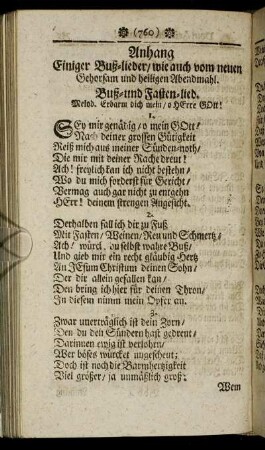 (760)
Anhang
Einiger Buß-lieder / wie auch vom neuen
Gehorsam und heiligen Abendmahl.
Buß- und Fasten-lied.
Melod. Erbarm dich mein / o HErre GOtt!
1.
SEy mir genädig / o mein GOtt /
Nach deiner grossen Gütigkeit
Reiß mich aus meiner Sünden-noth /
Die mir mit deiner Rache dreut!
Ach! freylich kan ich nicht bestehn /
Wo du mich forderst für Gericht /
Vermag auch gar nicht zu entgehn
HErr! deinem strengen Angesicht.
2.
Derhalben fall ich dir zu Fuß
Mit Fasten / Weinen / Reu und Schmertz /
Ach / würck du selbst wahre Buß /
Und gieb mir ein recht gläubig Hertz
An JEsum Christum deinen Sohn /
Der dir allein gefallen kan /
Den bring ich hier für deinen Thron /
In diesem nimm mein Opfer an.
3.
Zwar unerträglich ist dein Zorn /
Den du den Sündern hast gedreut /
Darinnen ewig ist verlohrn /
Wer böses würcket ungescheut;
Doch ist noch die Barmhertzigkeit
Viel größer / ja unmäßlich groß.
Wem